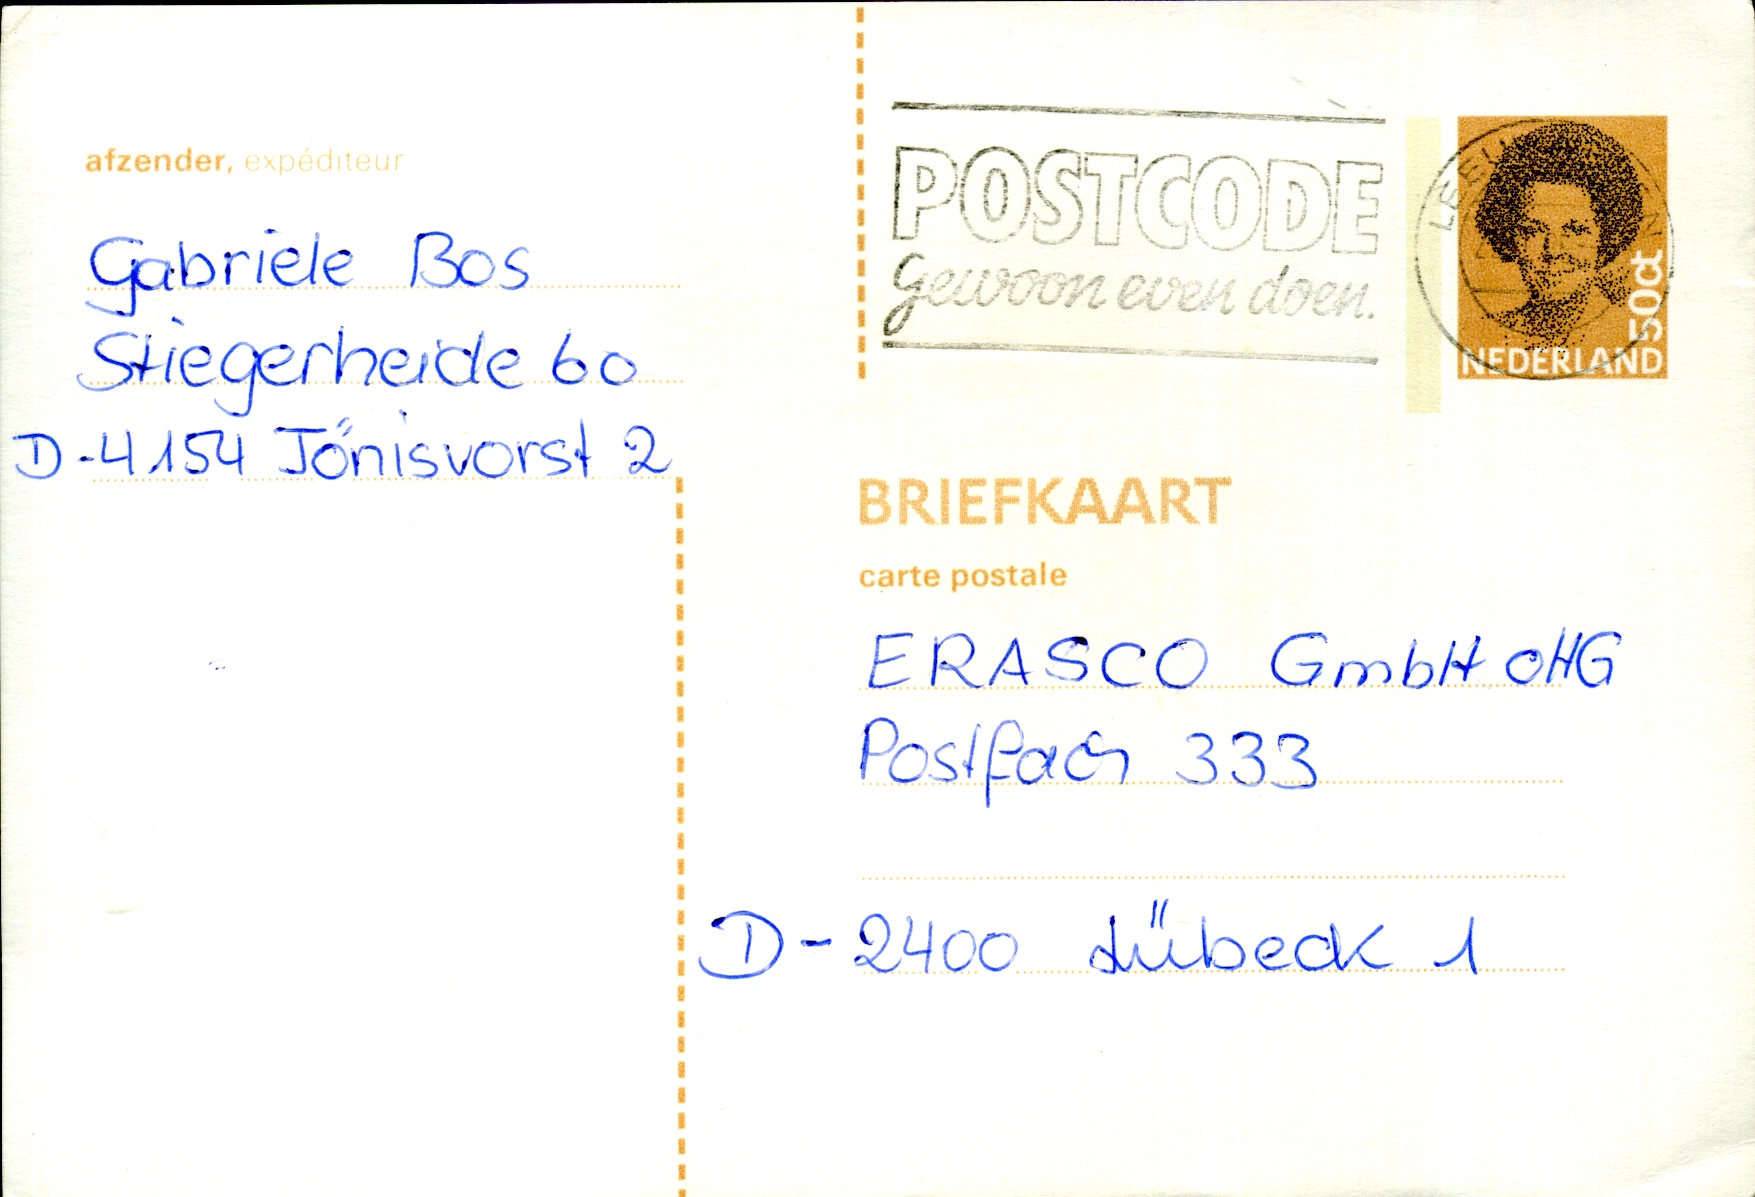 afzender, expéditeur
Gabriele Bos
Stiegerheide 60
D-4154 Tönisvorst 2
POSTCODE
gewoon even doen.
50ct
NEDERLAND
BRIEFKAART
carte postale
ERASCO GmbH OHG
Postfach 333
D-2400 Lübeck 1